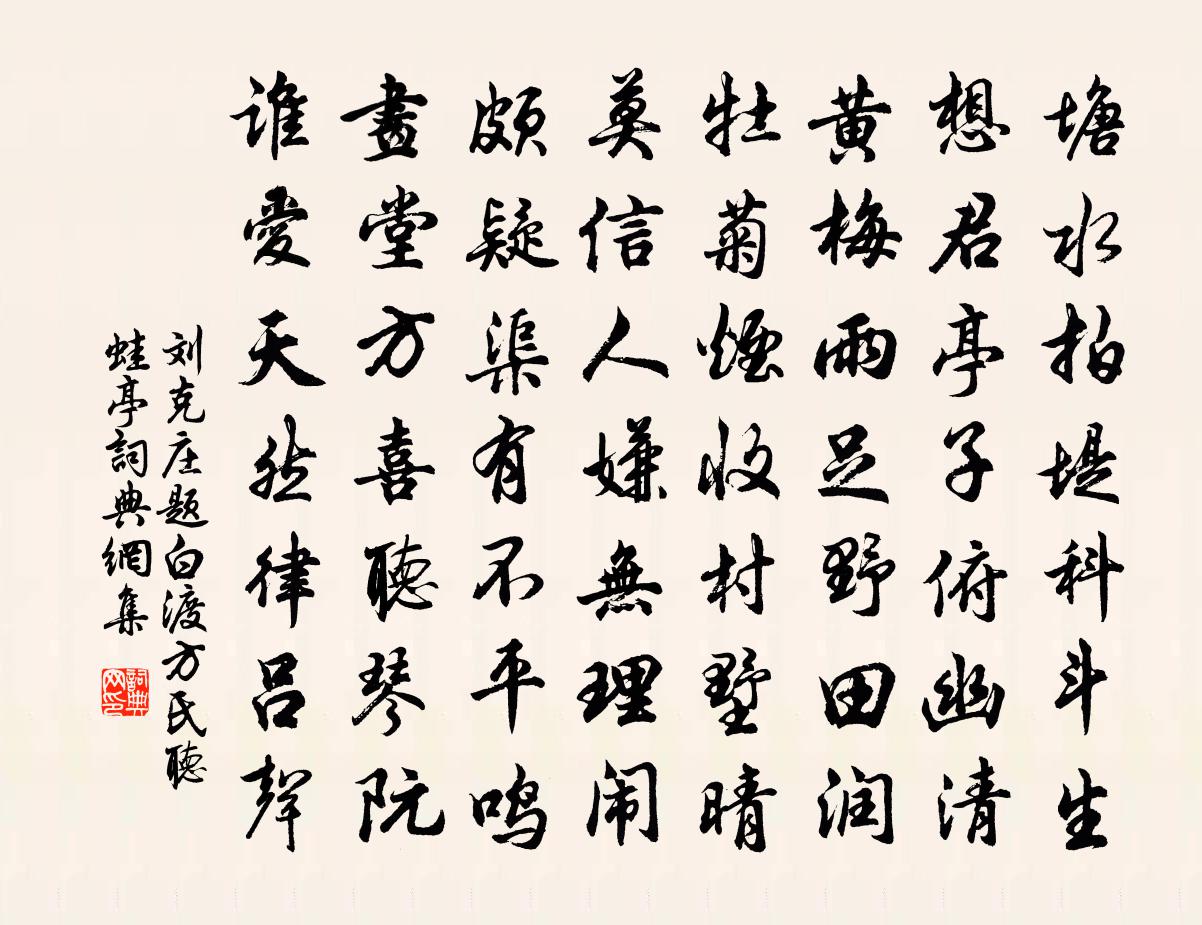 塘水拍堤科斗生
想君亭子俯幽清
黄梅雨足野田润
牡菊煙收村墅晴
莫信人嫌無理闹
頗疑渠有不平鸣
畫堂方喜聽琴阮
谁愛天然律吕聲
刘克庄题白渡方氏聽
蛙亭詞典網集
詞典
网印